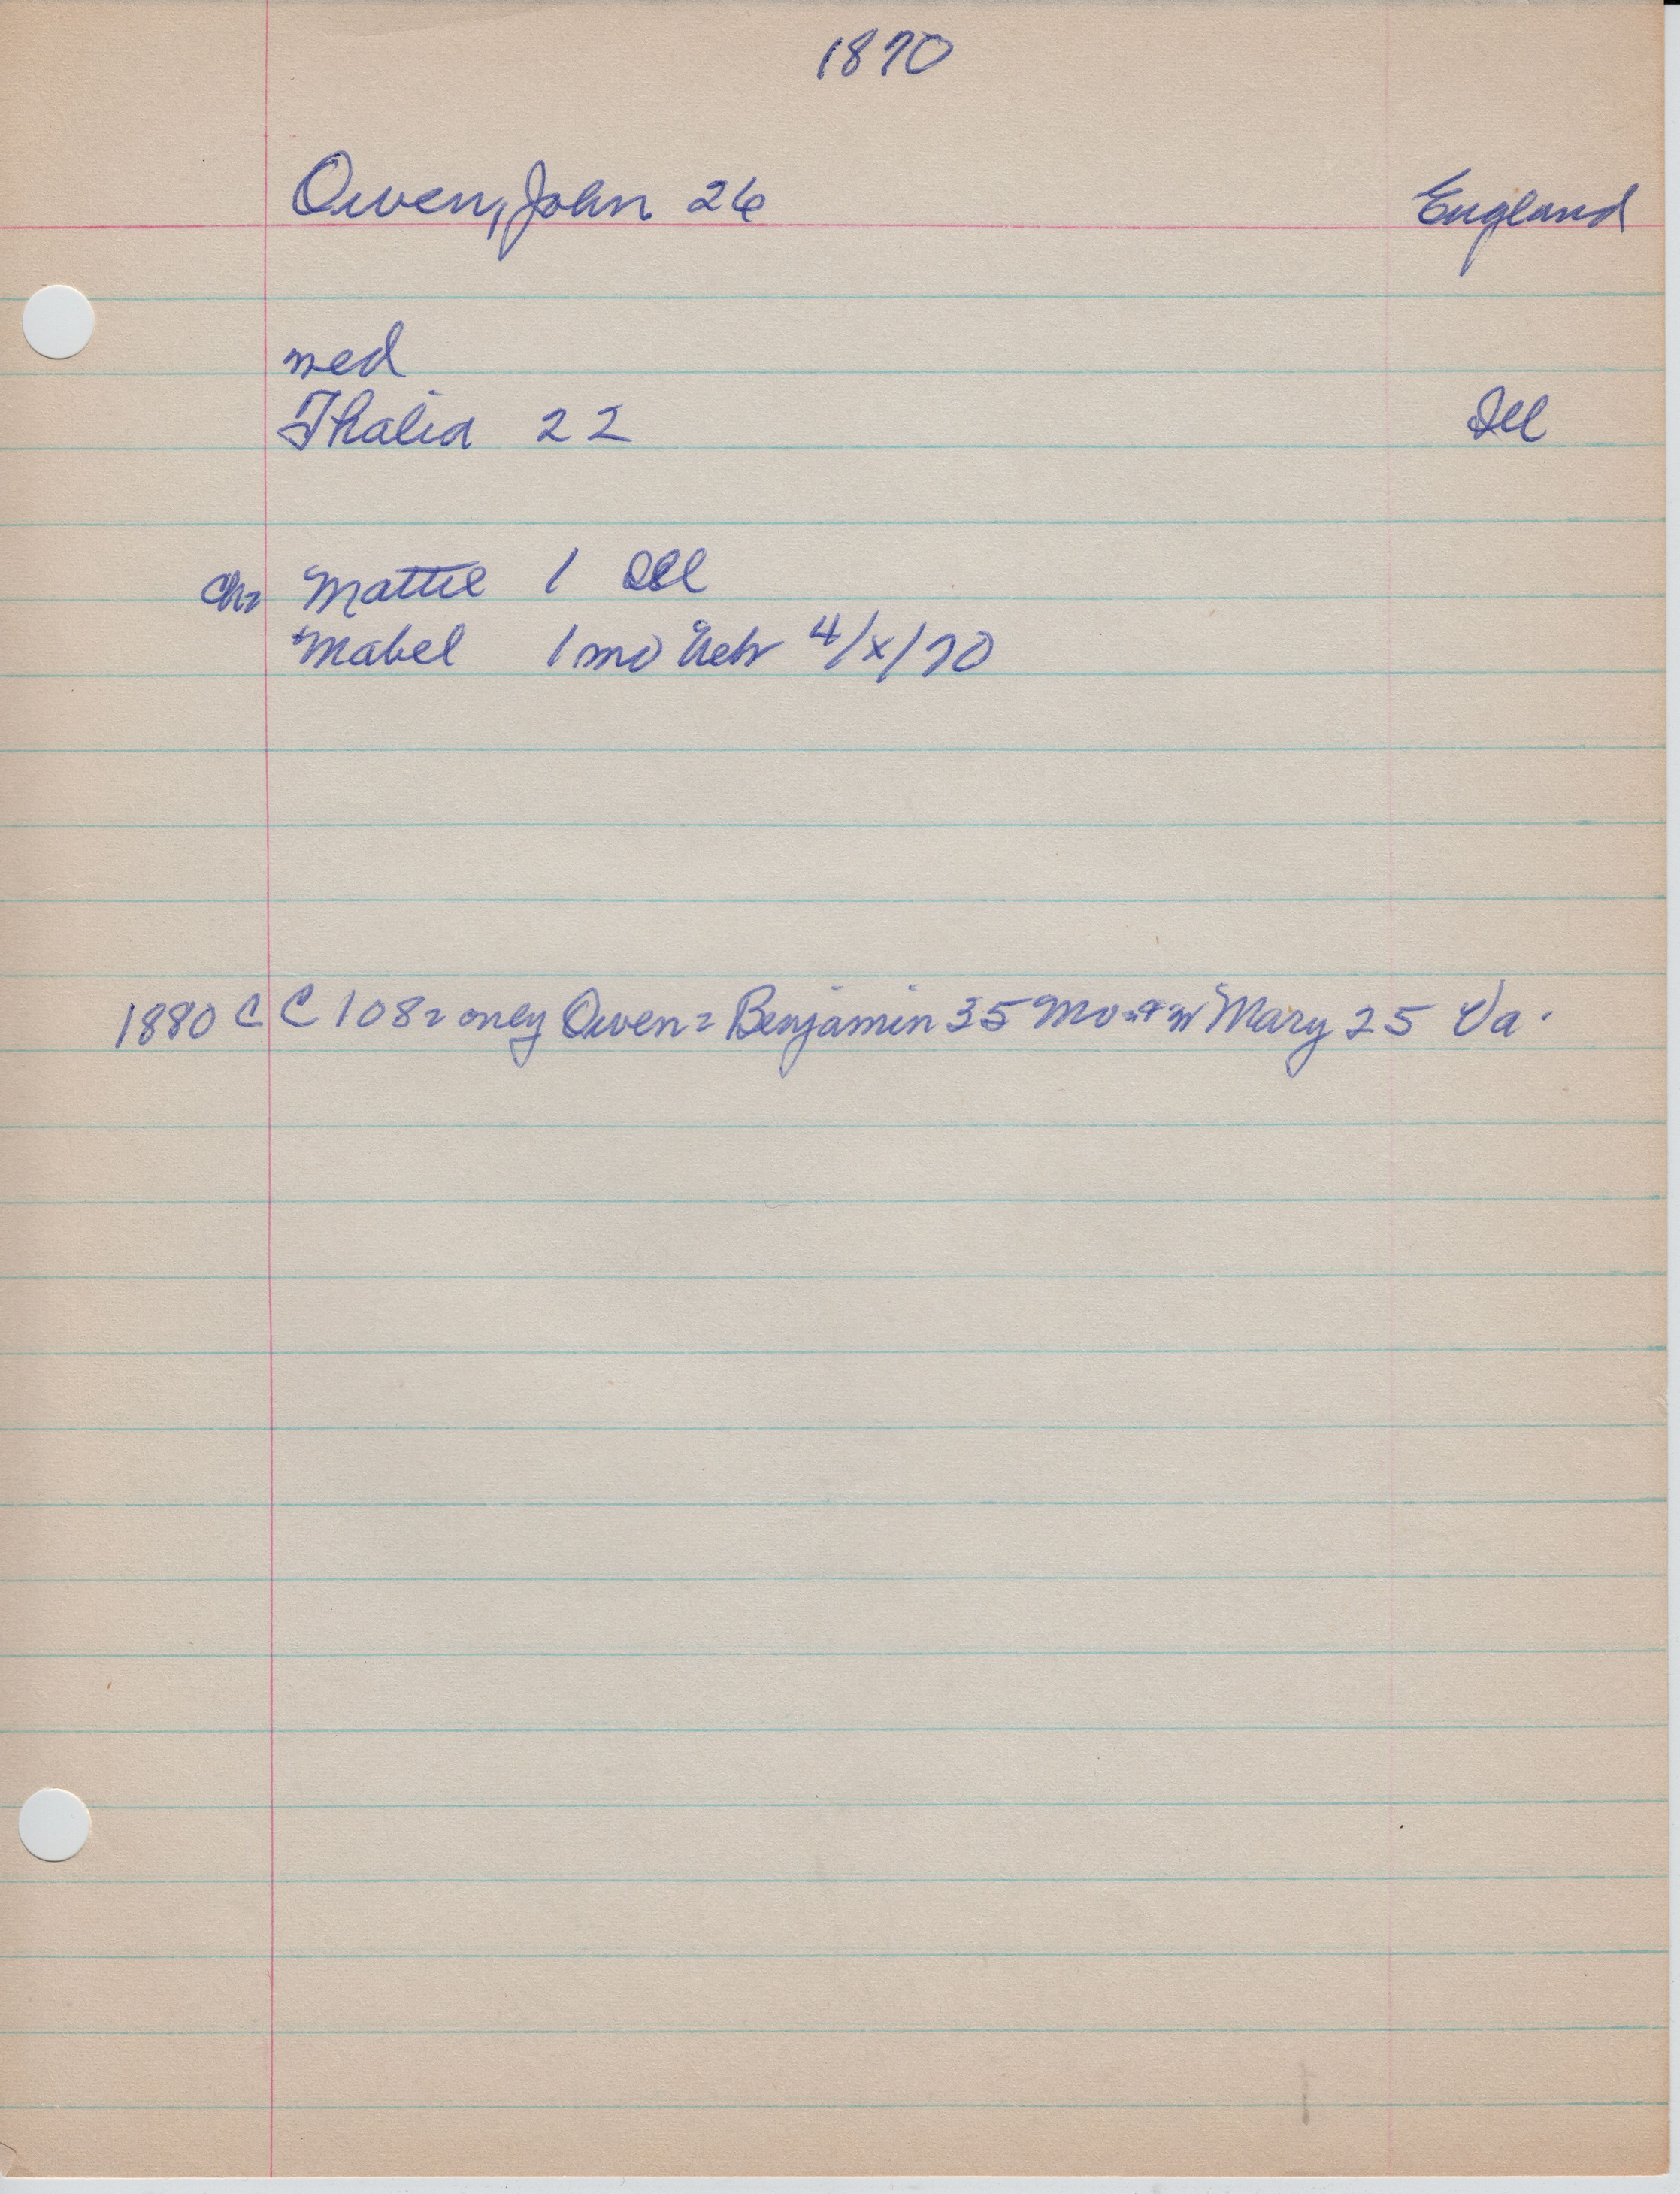 1870
Owen, John 26 England
med
Thalia 22 Ill
Ch= Mattie 1 Ill
Mabel 1 mo Nebr 4/x/70
1880 C C 108= only Owen= Benjamin 35 Mo Mary 25 Va.